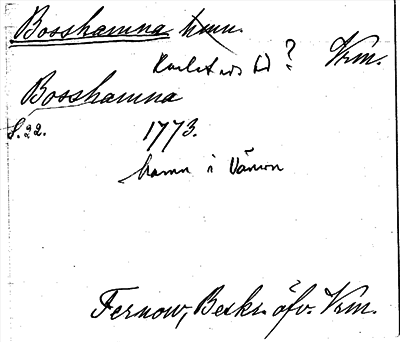 Bosshamna hmn.
Karlstads hd? Vrm.
Bosshamna
S. 22. 1773.
hamn i Vänern
Fernow, Beskr. öfv. Vrm.